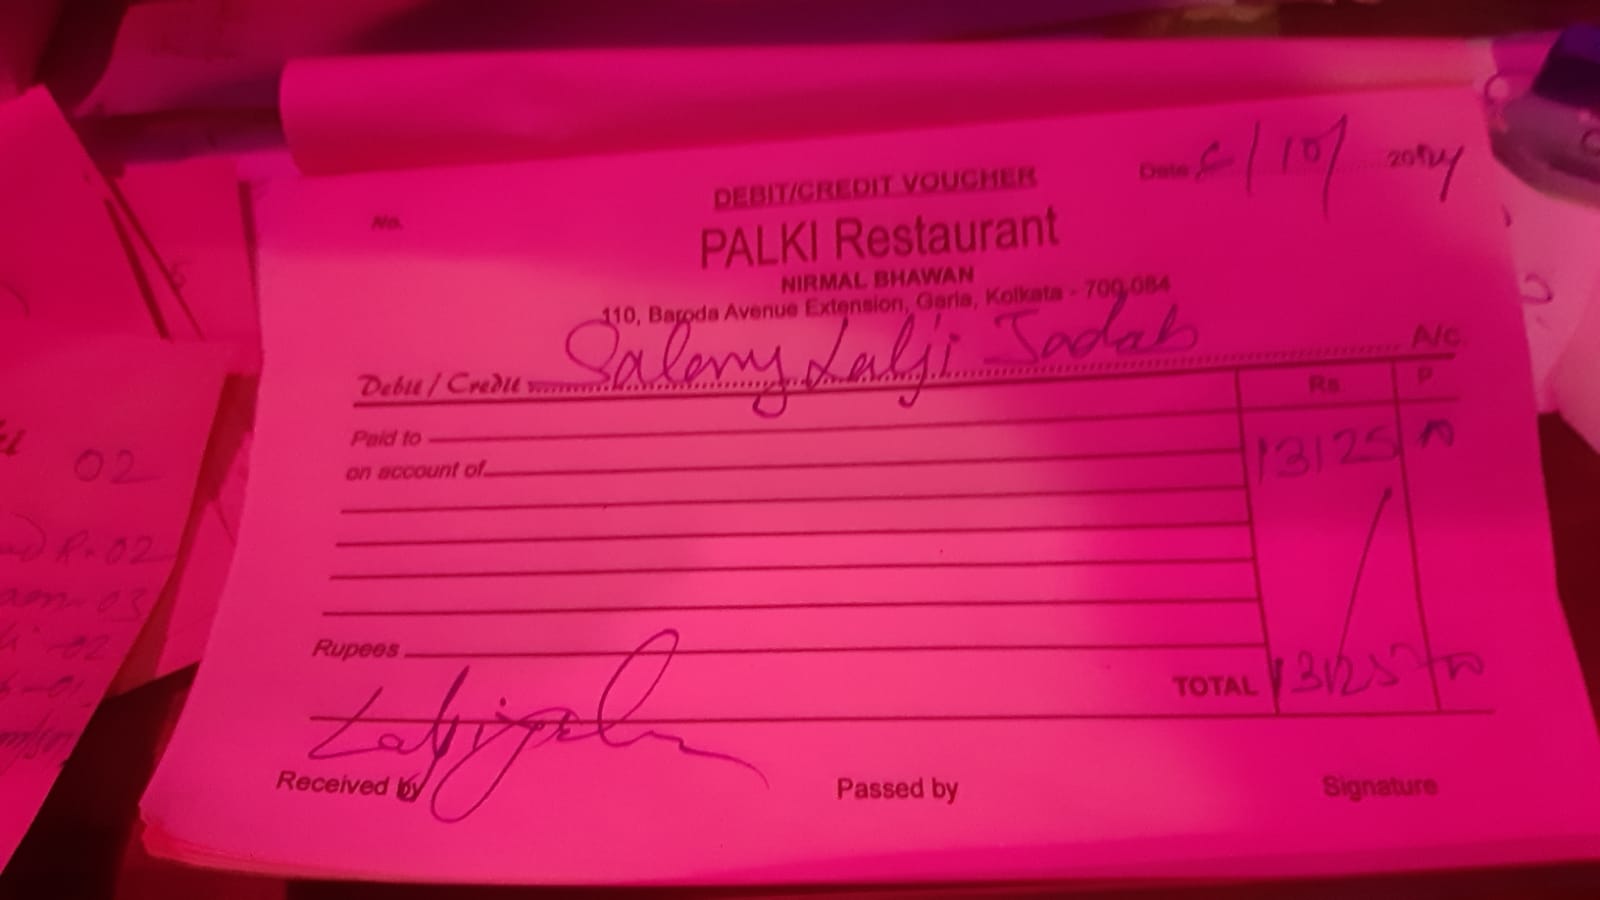 No.
DEBIT/CREDIT VOUCHER
Date /10/ 2024
PALKI Restaurant
NIRMAL BHAWAN
110, Baroda Avenue Extension, Garia, Kolkata - 700 084
Debit / Credit Salery Lalji Jadab A/c.
Rs. P
Paid to 13125 00
on account of
Rupees
TOTAL 13125 00
Received by
Passed by
Signature
02
R. 02
03
02